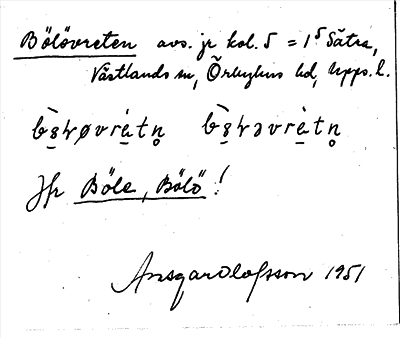 Bölövreten avs. jr kol. 5 = 1⁵ Sätra,
Västlands sn, Örbyhus hd, Upps. l.
Jfr Böle, Bölö!
Ansgar Olofsson 1951